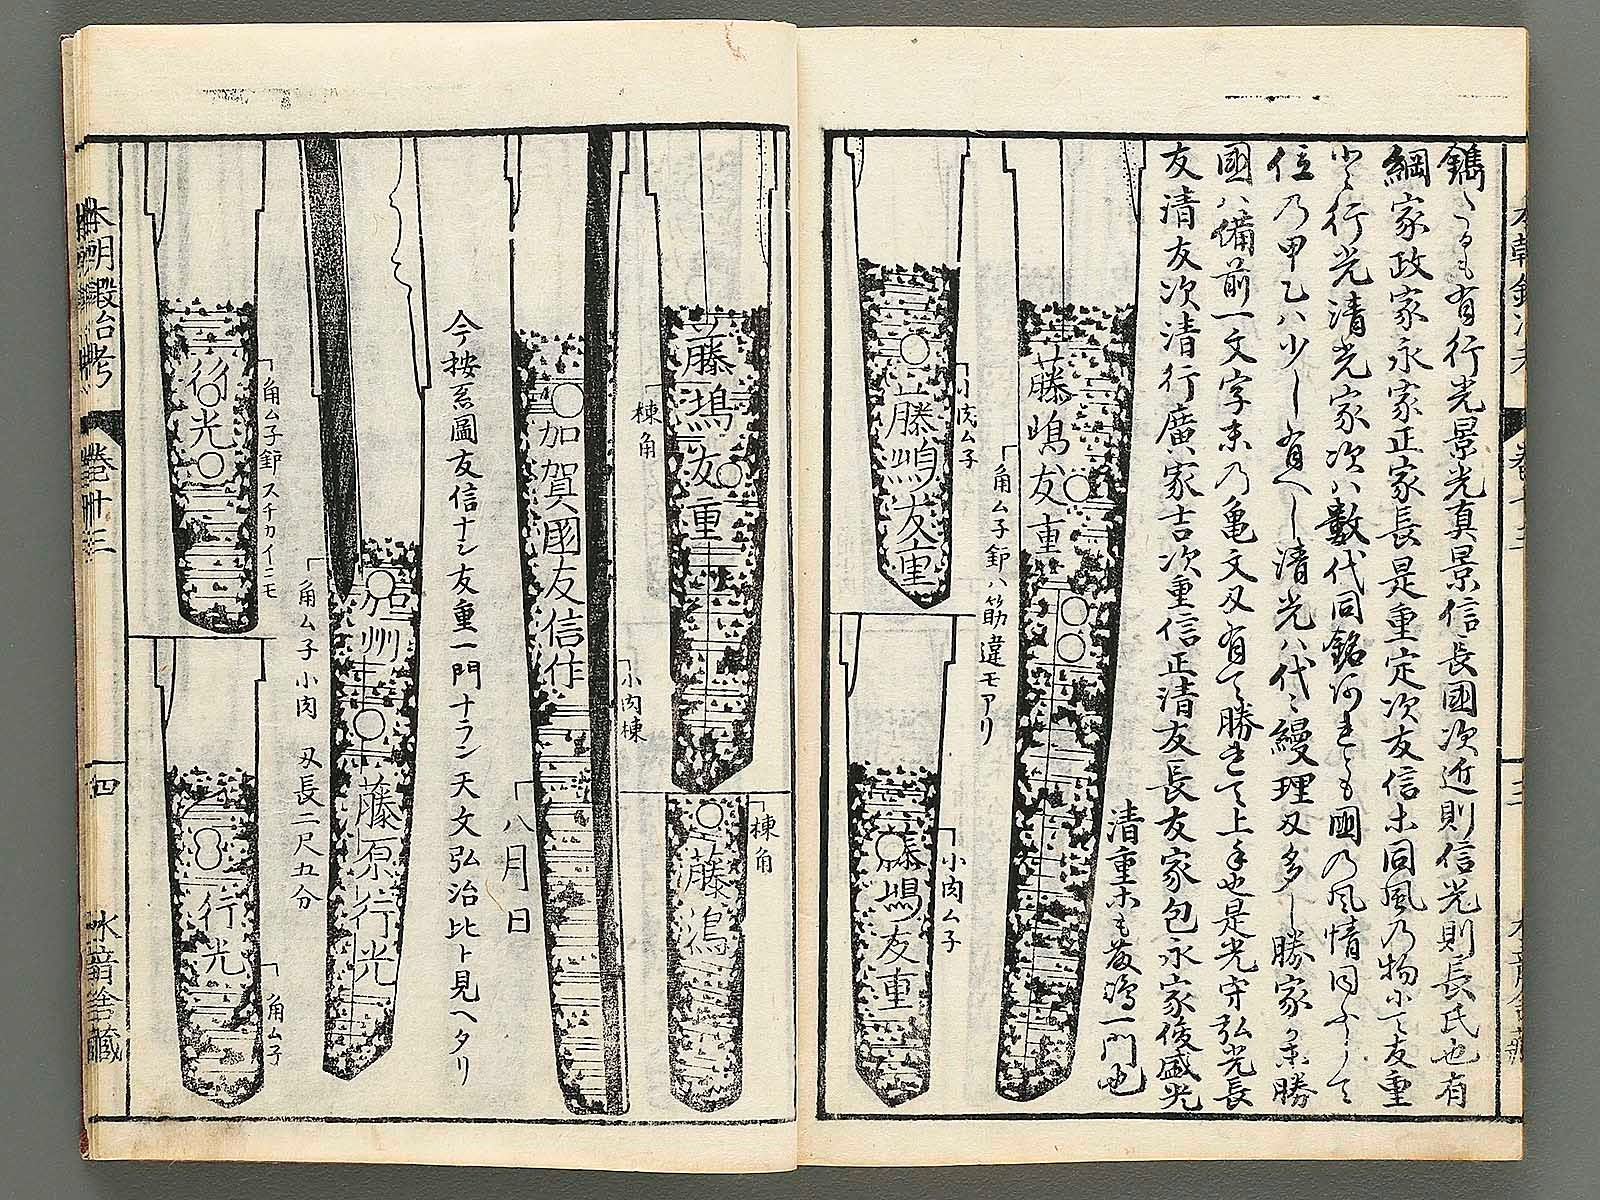 鐫〱るも有行光景光真景信長國次近則信光則長氏也有
綱家政家永家正家長是重定次友信ホ同風乃物小て友重
小く行光清光家次ハ數代同銘阿れとも國乃風情同ふして
位乃甲乙ハ少し有へし清光ハ代〻縵理又多し勝家家勝
國ハ備前一文字末乃亀文又有て勝れて上手也是光守弘光長
友清友次清行廣家吉次重信正清友長友家包永家俊盛光
清重ホも藤嶋一門也
藤嶋友重
角ム子鈩ハ筋違モアリ
藤嶋友重
小肉ム子
藤嶋友重
小肉ム子
藤嶋友重
棟角
藤嶋
棟角
加賀國友信作
小肉棟
八月日
今按系圖友信ナシ友重一門ナラン天文弘治比ト見ヘタリ
藤原行光
角ム子小肉 刄長二尺五分
行光
角ム子鈩スチカイニモ
行光
角ム子
本朝鍛冶考
巻十三
四